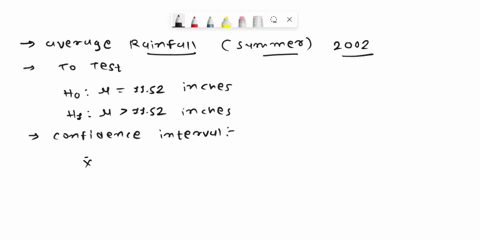 → average Rainfall (summer) 2002
→ To Test
H₀: μ = 11.52 inches
H₁: μ > 11.52 inches
→ confidence interval:-
x̄